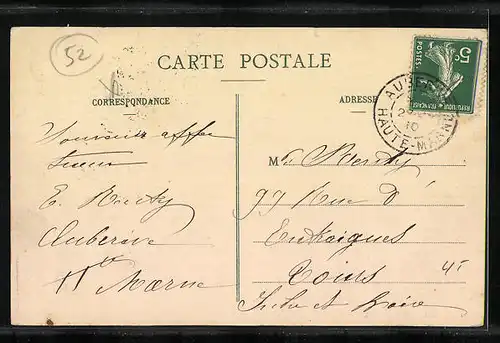 52
CARTE POSTALE
CORRESPONDANCE
ADRESSE
5c
POSTES
REPUBLIQUE FRANÇAISE
AUB
10
HAUTE-MARNE
Souvenir affec
E.
Auberive
Hte Marne
M
99 Rue d'
Entraigues
Tours
Indre et Loire